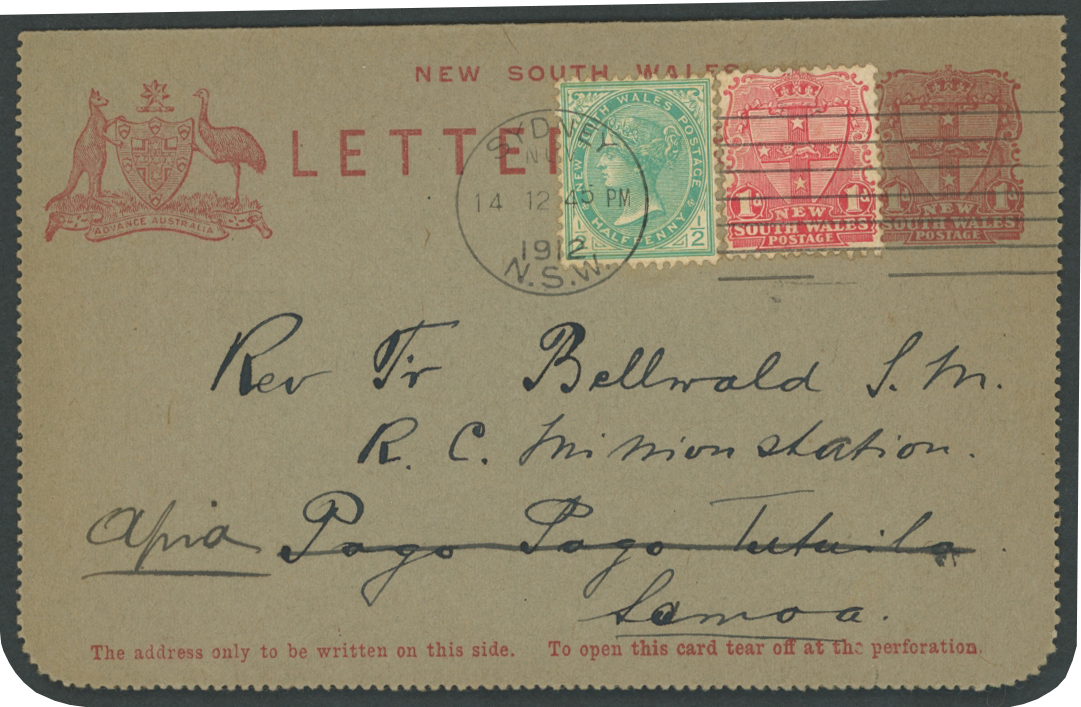 NEW SOUTH WALES
LETTER
ADVANCE AUSTRALIA
NEW SOUTH WALES POSTAGE
HALFPENNY
1/2 1/2
1d 1d
NEW
SOUTH WALES
POSTAGE
1d 1d
NEW
SOUTH WALES
POSTAGE
SYDNEY
14 12 45 PM
1912
N.S.W.
Rev Fr Bellwald S. M.
R. C. Mission station.
Apia Pago Pago Tutuila
Samoa.
The address only to be written on this side. To open this card tear off at the perforation.